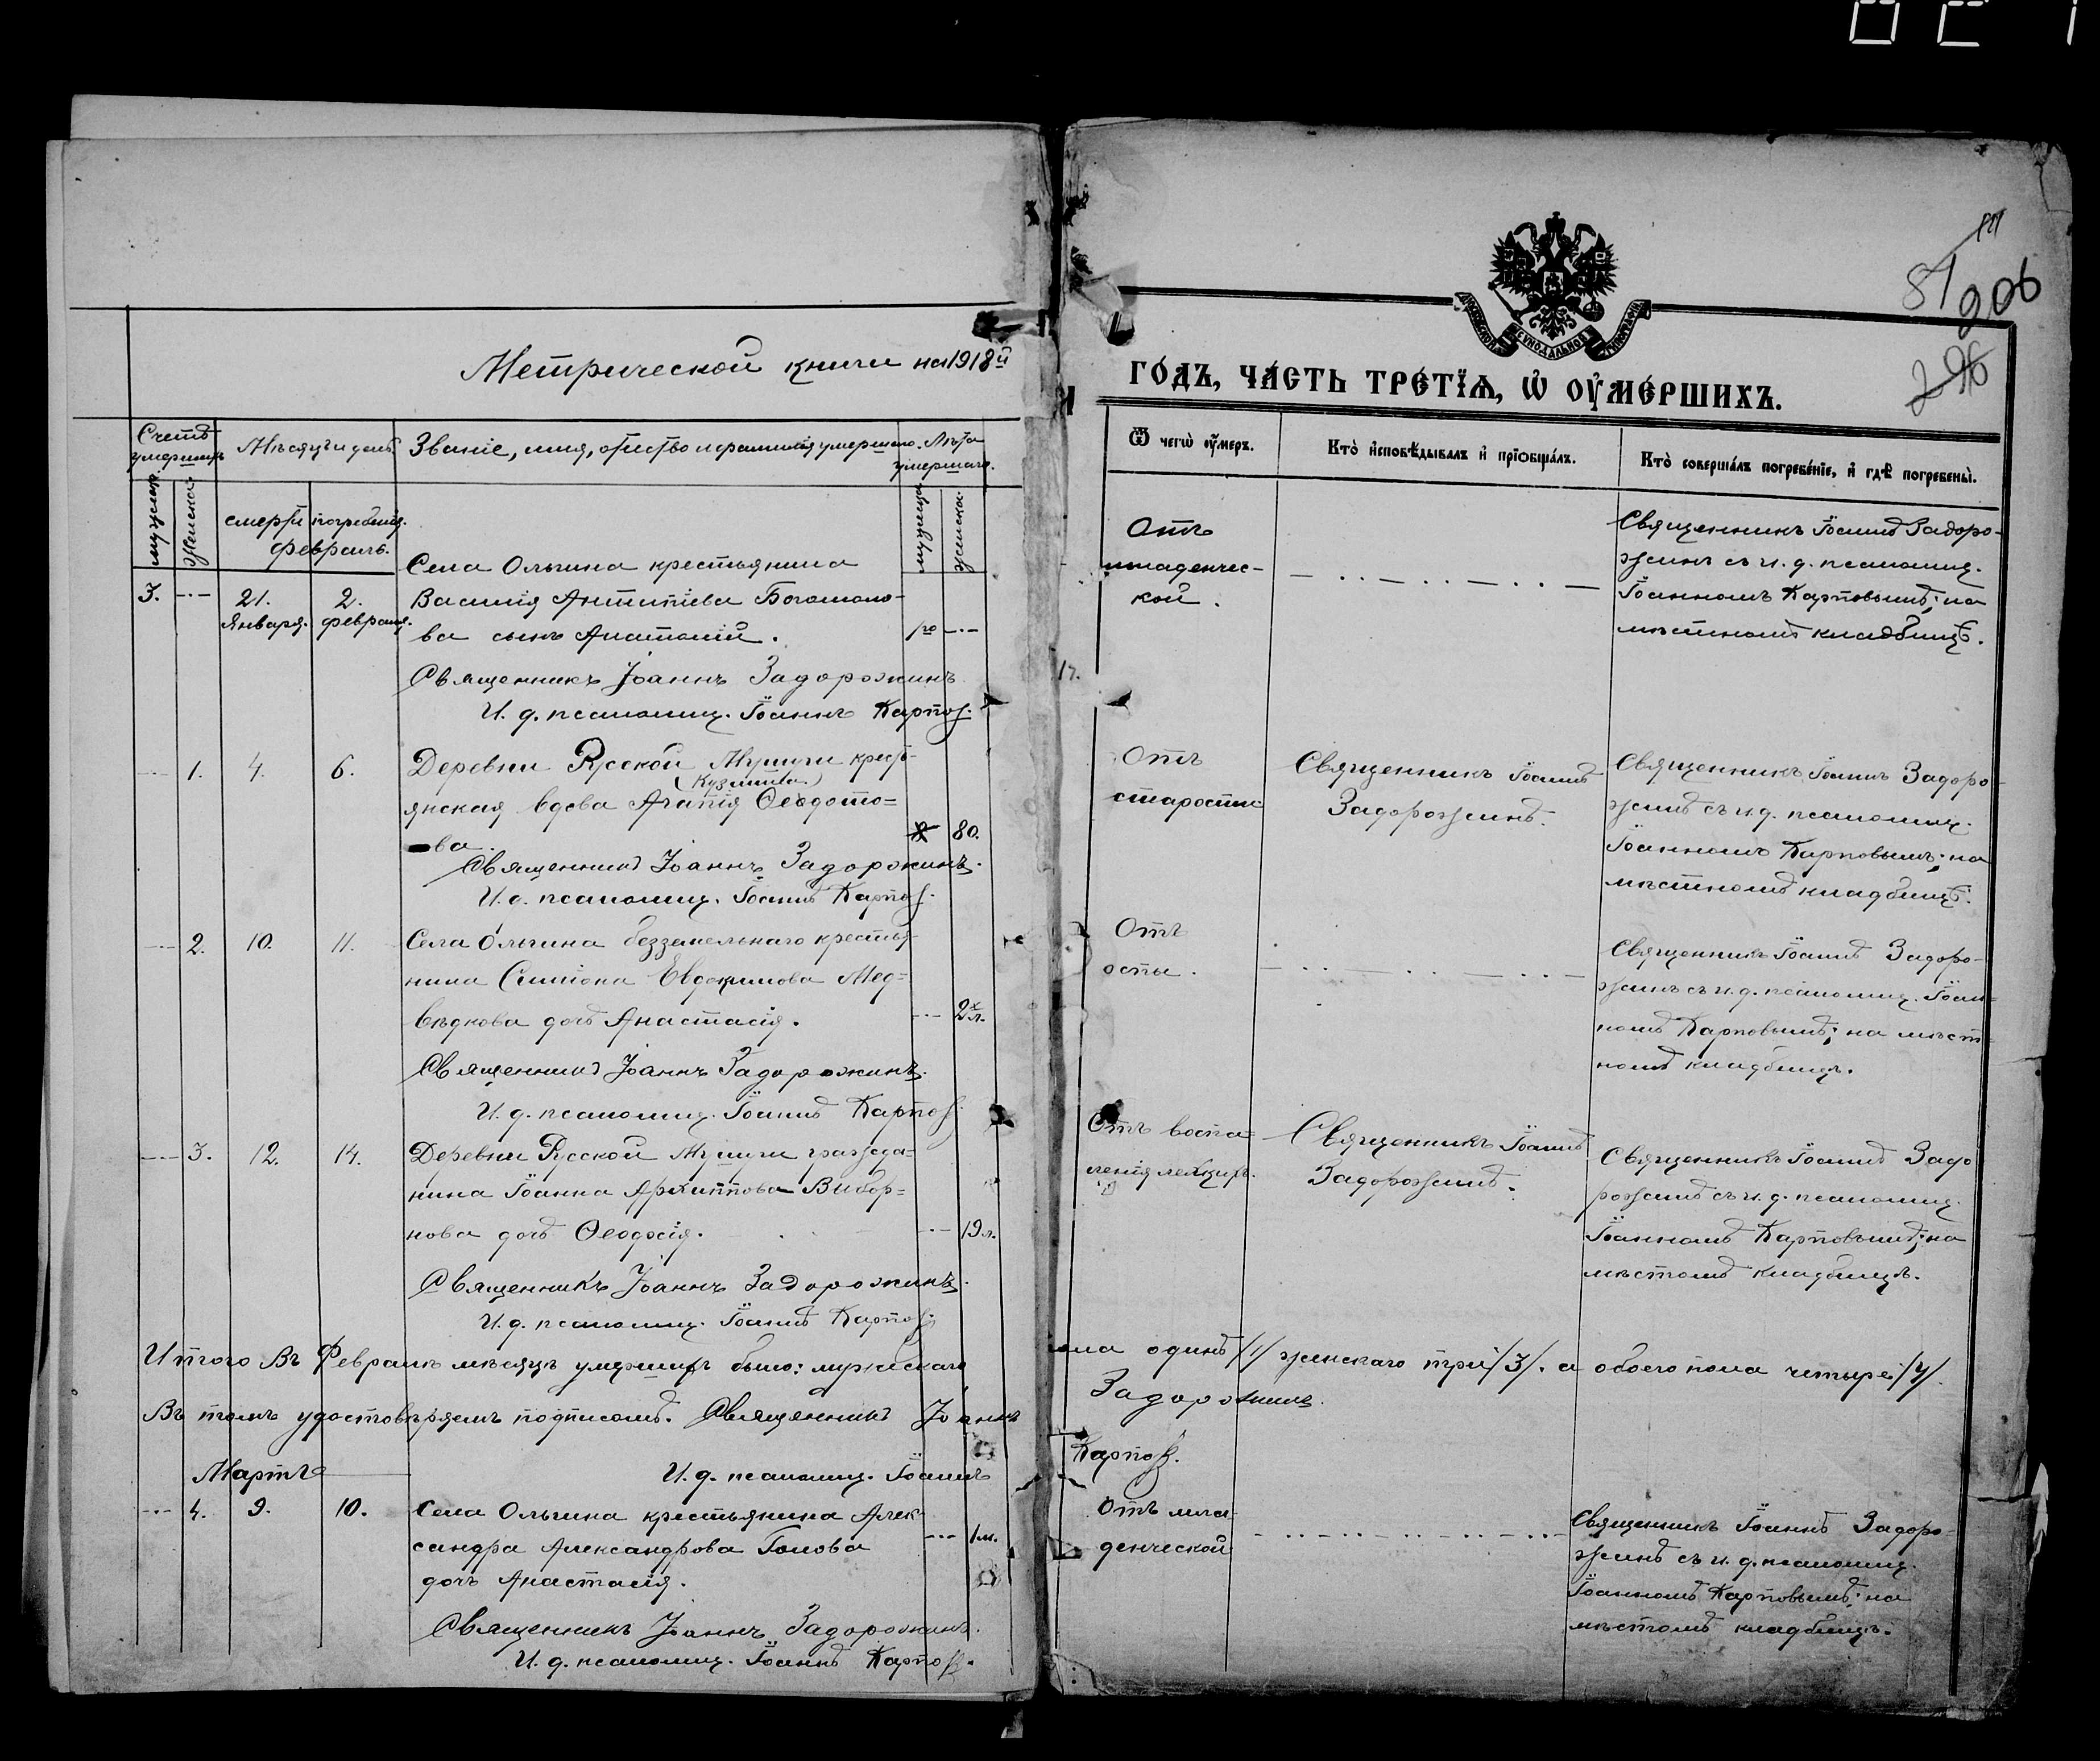 Метрической книги на 1918й
ГОДЪ, ЧАСТЬ ТРЕТІѦ, Ѡ ОУМЕРШИХЪ.
206
Счетъ умершихъ
Мѣсяцъ и день
Званіе, имя, отчество и фамилія умершаго.
Лѣта умершаго.
Ѿ чегѡ оумеръ.
Кто исповѣдывалъ и прїѡбщалъ.
Кто совершалъ погребенїе, и гдѣ погребены.
мужска
женска
смерти
погребенія.
Февраль.
мужеска
женска
3.
21. Января.
2. февраля.
Села Ольгина крестьянина
Василія Антипіева Богомоло-
ва сынъ Анатолій.
Священникъ Іоаннъ Задорожинъ
И. д. псаломщ. Іоаннъ Карпов.
Отъ
младенчес-
кой.
Священникъ Іоаннъ Задоро-
жинъ съ и. д. псаломщ.
Іоанномъ Карповымъ; на
мѣстномъ кладбищѣ.
1.
4.
6.
Деревни Русской Мушуги кресть-
(Кузмина)
янская вдова Агапія Ѳеодото=
ва.
80.
Священникъ Іоаннъ Задорожинъ.
И. д. псаломщ. Іоаннъ Карпов.
Отъ
старости
Священникъ Іоаннъ
Задорожинъ.
Священникъ Іоаннъ Задоро-
жинъ съ и. д. псаломщ.
Іоанномъ Карповымъ; на
мѣстномъ кладбищѣ.
2.
10.
11.
Села Ольгина безземельнаго крестья-
нина Симіона Евдокимова Мед=
вѣдкова дочь Анастасія.
2х л.
Священникъ Іоаннъ Задорожинъ.
И. д. псаломщ. Іоаннъ Карпов.
Отъ
оспы.
Священникъ Іоаннъ Задоро-
жинъ съ и. д. псаломщ. Іоан=
номъ Карповымъ; на мѣст-
номъ кладбищѣ.
3.
12.
14.
Деревни Русской Мушуги гражда-
нина Іоанна Архиппова Выбор=
нова дочь Ѳеодосія.
19 л.
Священникъ Іоаннъ Задорожинъ.
И. д. псаломщ. Іоаннъ Карпов.
Отъ воспа=
ленія легкихъ.
Священникъ Іоаннъ
Задорожинъ.
Священникъ Іоаннъ Задо
рожинъ съ и. д. псаломщ.
Іоанномъ Карповымъ; на
мѣстномъ кладбищѣ.
Итого въ Февралѣ мѣсяцѣ умершихъ было: мужскаго пола одинъ /1/ женскаго три /3/. а обоего пола четыре /4/.
Въ томъ удостовѣряемъ подписомъ. Священникъ Іоаннъ Задорожинъ.
И. д. псаломщ. Іоаннъ Карпов.
Мартъ
4.
9.
10.
Села Ольгина крестьянина Алек-
сандра Александрова Попова
дочь Анастасія.
1 м.
Священникъ Іоаннъ Задорожинъ.
И. д. псаломщ. Іоаннъ Карпов.
Отъ мла-
денческой
Священникъ Іоаннъ Задоро-
жинъ съ и. д. псаломщ.
Іоанномъ Карповымъ; на
мѣстномъ кладбищѣ.